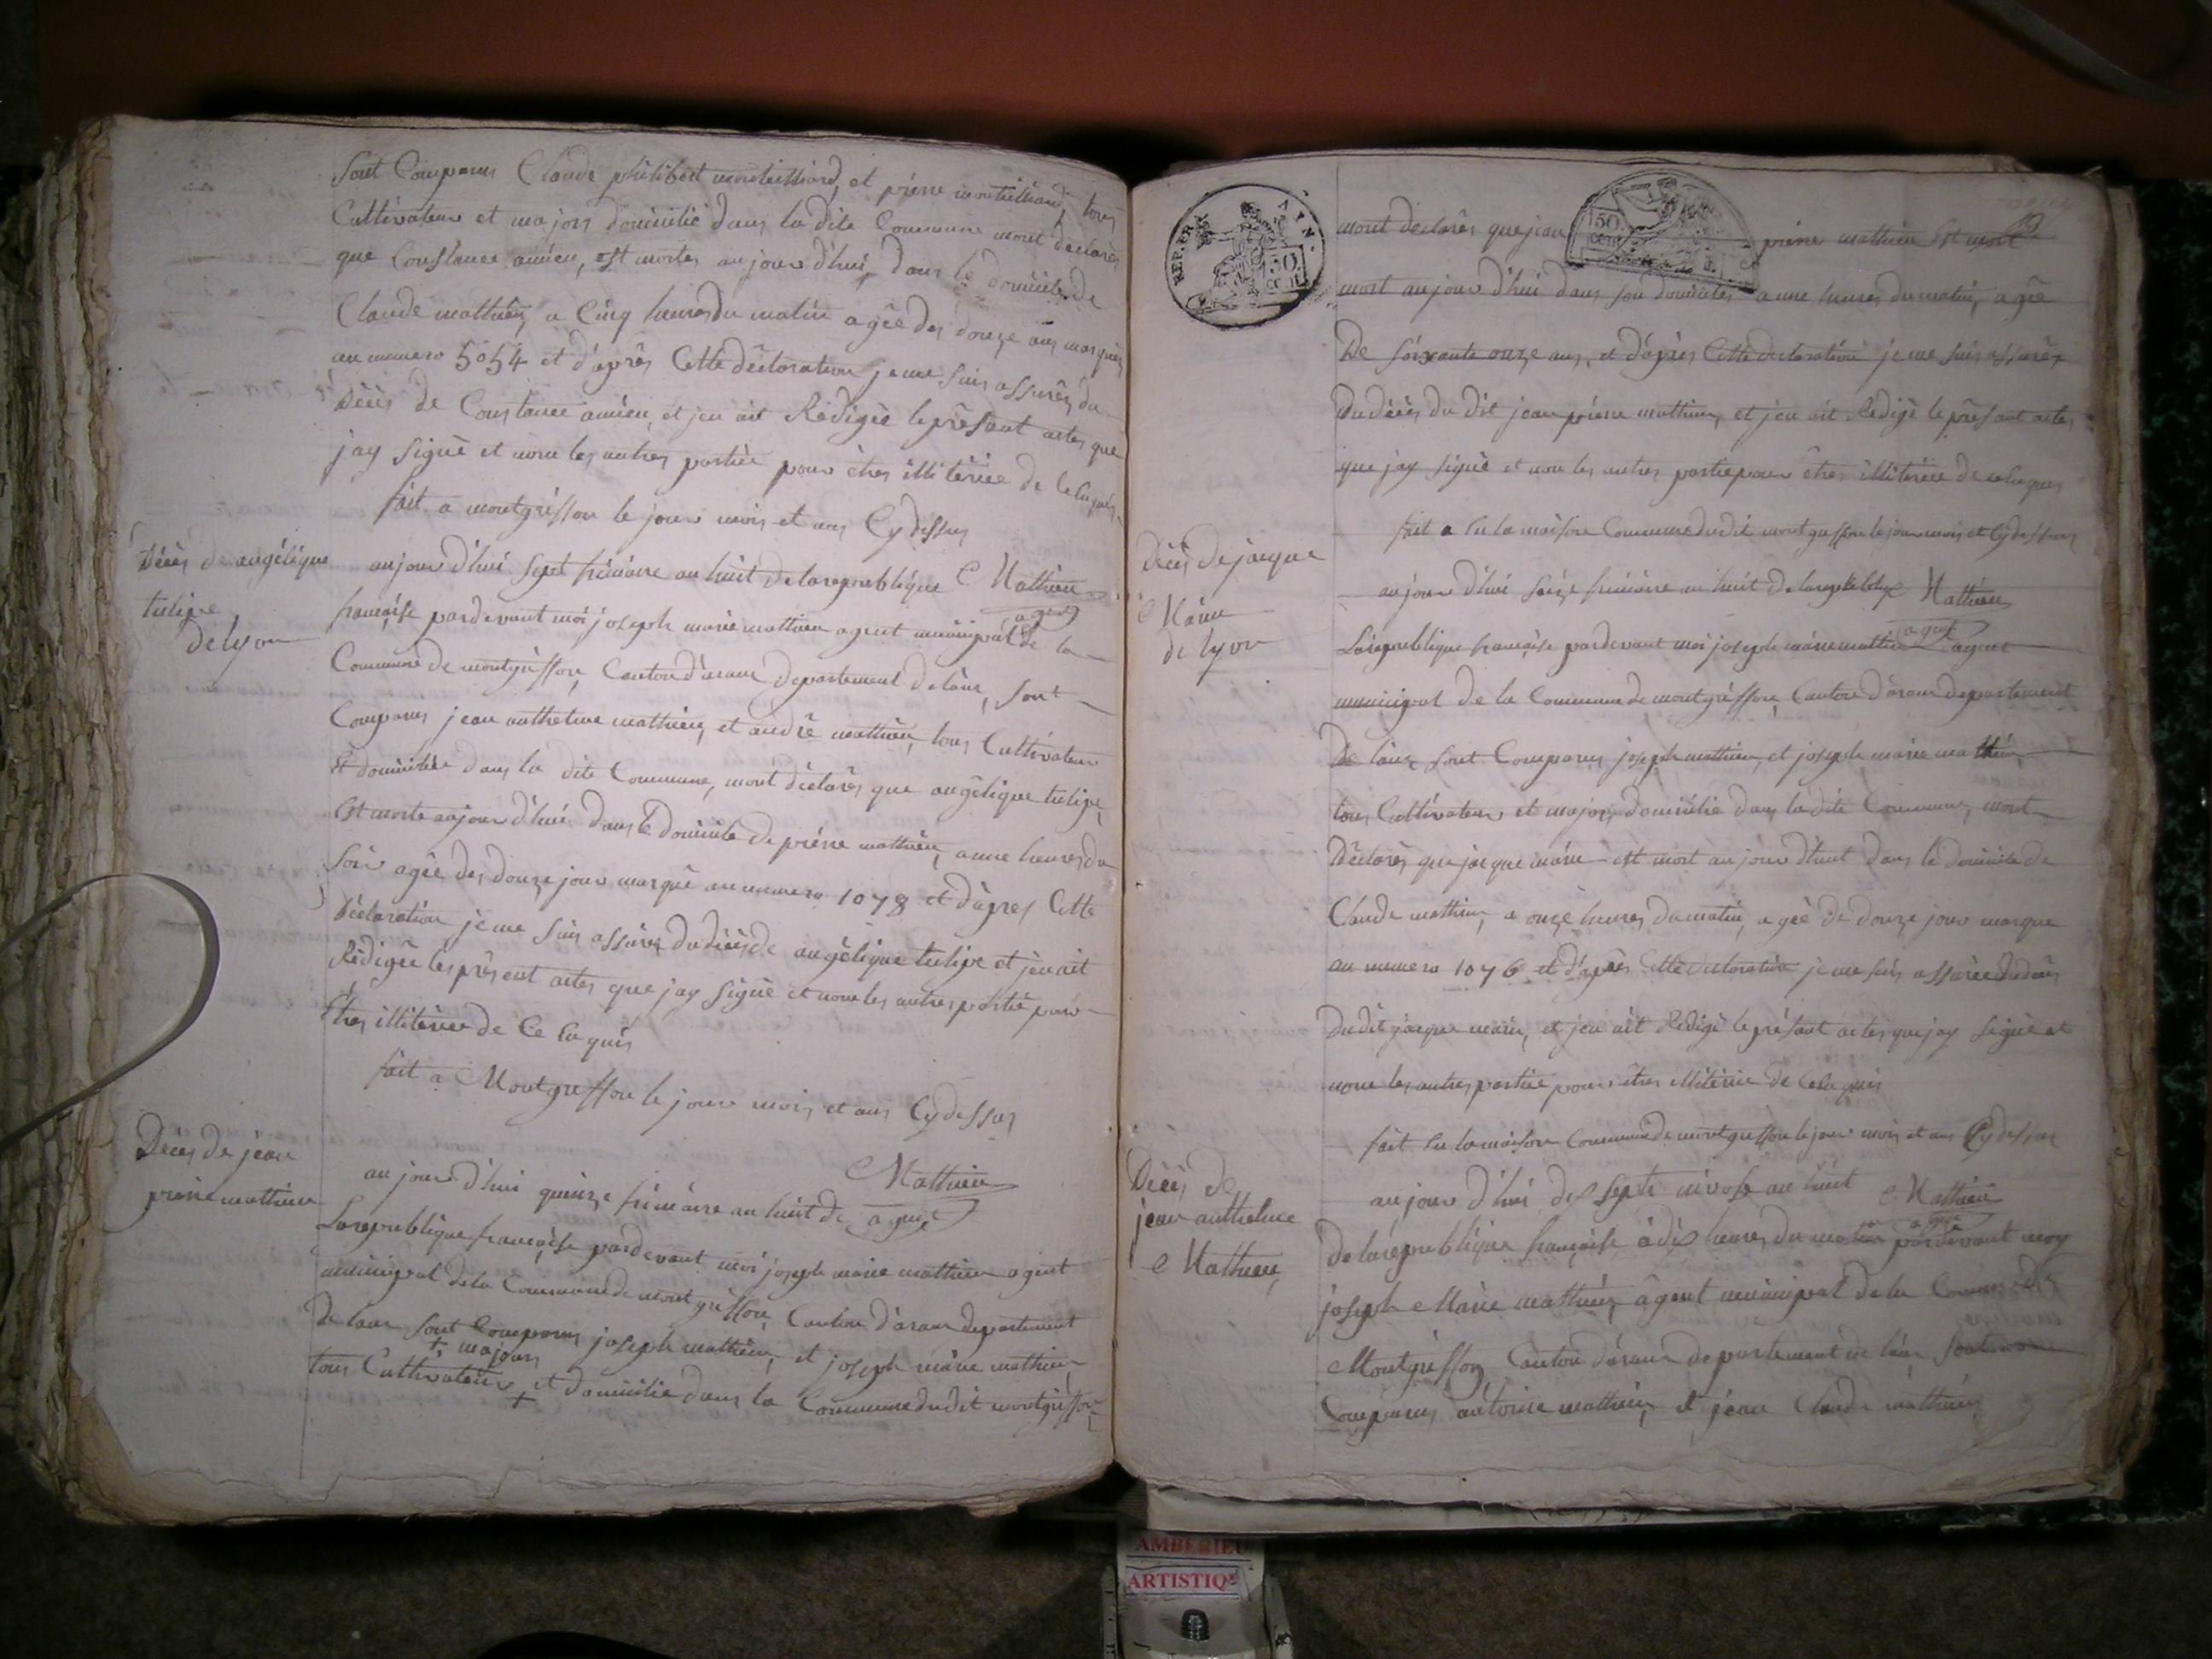 Sont Comparus Claude philibert montillard et pierre montilliard tous
Cultivateur et majors domicilié dans la dite Commune mont declarés
que Constance amien, est mortes au jour d'hui, dans le domicile de
Claude mathieu, a Cinq heures du matin agêe des douze ans marqués
au numero 5054 et d'aprês Cette dêclaration je me suis assurês du
Décès de Constance amien, et jen ait Rédigée le prêsant actes que
jay signê et nom les autres partiêe pour êtres illitérêe de Ce enquis
fait a montgriffon le jour mois et ans Cy dessus
Décès de angélique
tulipe
de lyon
aujour d'hui sept frimaire an huit de la republique Mathieu
agent
française pardevant moi joseph marie mathieu agent municipal de la
Commune de montgriffon, Canton d'arane departement de lain, sont
Comparus jean anthelme mathieu, et andré mathieu, tous Cultivateur
et domiciliée dans la dite Commune, mont declarês que angêlique tulipe,
est morte aujour d'hui dans le domicile de piêrre mathieu, a une heures du
soir agée des douze jour marquê au numero 1078 et d'apres Cette
Déclaration je me suis assurês du décès de angélique tulipe et jen ait
Rédigée les prêsent actes que jay signê et nom les autres partiê pour
Etres illitérêe de Ce enquis
fait a Montgriffon le jour mois et ans Cy dessus
Décès de jean
pierre mathieu
Mathieu
agent
au jour d'hui quinze frimaire an huit de
La republique française pardevant moi joseph marie mathieu agent
municipal de la Commune de montgriffon, Canton d'arane departement
de lain sont Comparus joseph mathieu, et joseph marie mathieu,
+ majors
tous Cultivateur + et domicilie dans la Commune du dit montgriffon
REP. FRA. AYN.
50 CENT.
50 CENT
mont declarês que jean pierre mathieu est mort
mort au jour d'hui dans son domicile a une heures du matin, agêe
De soixante onze ans, et d'après Cette declaration je me suis assurês
Du décès du dit jean pierre mathieu, et jen ait Rédigê le prêsant actes
que jay signê et nom les autres partie pour êtres illitérêe de ce enquis
fait a en la maison Commune du dit montgriffon le jour mois et Cy dessus
Décès de jacque
Marie
de lyon
aujour d'hui seize frimaire an huit de Mathieu
agent
La republique française pardevant moi joseph marie mathieu agent
municipal de la Commune de montgriffon, Canton d'arane departement
De lain, sont Comparus joseph mathieu, et joseph marie mathieu
tous Cultivateur et majors domicilié dans la dite Commune, mont
Dêclarês que jacque marie est mort au jour d'hui dans le domicile de
Claude mathieu, a onze heures du matin, agêe de douze jour marque
au numero 1076 et d'aprês Cette declaration je me suis assurée du décès
Du dit jacque marie, et jen ait Rédigê le présant actes que jay signê et
nom les autres partiêe pour êtres illitérêe de Ce enquis
fait en la maison Commune de montgriffon le jour mois et ans Cy dessus
Décès de
jean anthelme
Mathieu
au jour d'hui dix septe nivose an huit Mathieu
agent
de la republique française à dix heures du matin pardevant moy
joseph Marie mathieu, âgent municipal de la Commune de
Montgriffon, Canton d'arane departement de lain sont
Comparus antoine mathieu, et jean Claude mathieu
AMBERIEU
ARTISTIQ